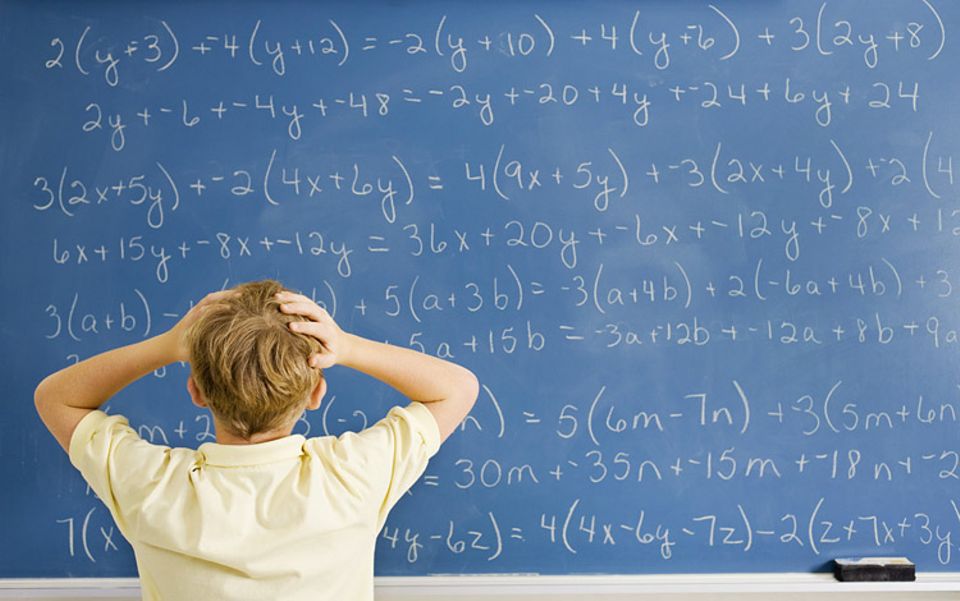 2(y+-3) +-4(y+12) = -2(y+10) +4(y+-6) + 3(2y+8)
2y +-6 +-4y +-48 = -2y +-20 +4y +-24 + 6y + 24
3(2x+5y) +-2(4x+6y) = 4(9x+5y) +-3(2x+4y) +-2(4
6x+15y+-8x+-12y = 36x+20y+-6x+-12y+-8x+12
3(a+b) b) +5(a+3b) = -3(a+4b) + 2(-6a+4b) +3
5a +15b = -3a+12b +-12a +8b +9a
(-2 ) = 5(6m-7n) +-3(5m+6n
m+ = 30m+-35n+-15m+-18n+-2
7(x 4y-6z) = 4(4x-6y-7z)-2(z+7x+3y)